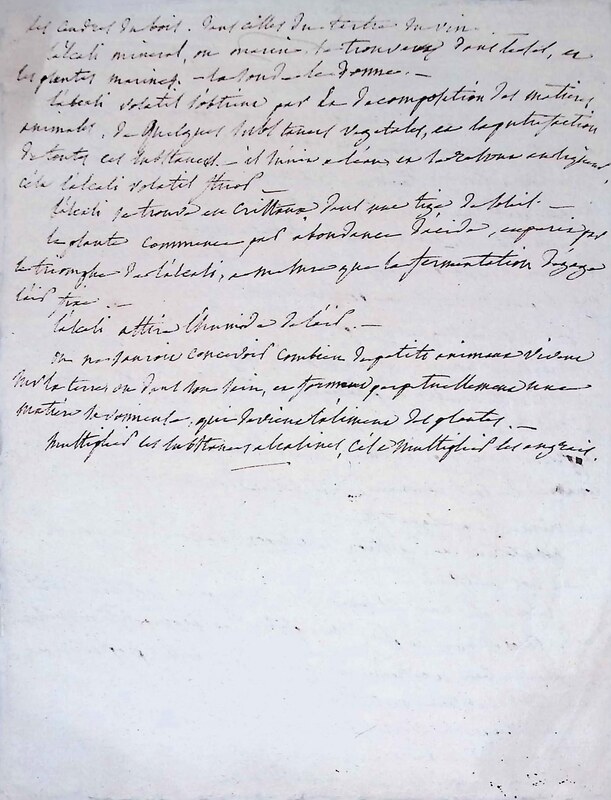 les cendres du bois. dans celles du tartre du vin.
l'alcali mineral, ou marin se trouve dans le sel, et
les plantes marines. - la soude le donne. -
l'alcali volatil s'obtient par la decomposition des matieres
animales, de quelques substances vegetales, et la putrefaction
de toutes ces substances. -
c'est l'alcali volatil
l'alcali se trouve en cristaux dans une tige de bled. -
la plante commence par abondance d'acide, et perit par
le triomphe de l'alcali, a mesure que la fermentation degage
l'air fixe. -
l'alcali attire l'humide de l'air. -
on ne sauroit concevoir combien de petits animaux vivent
sur la terre ou dans son sein, et forment perpetuellement une
matiere savonneuse, qui devient l'aliment des plantes. -
multiplier les substances alcalines, c'est multiplier les engrais.